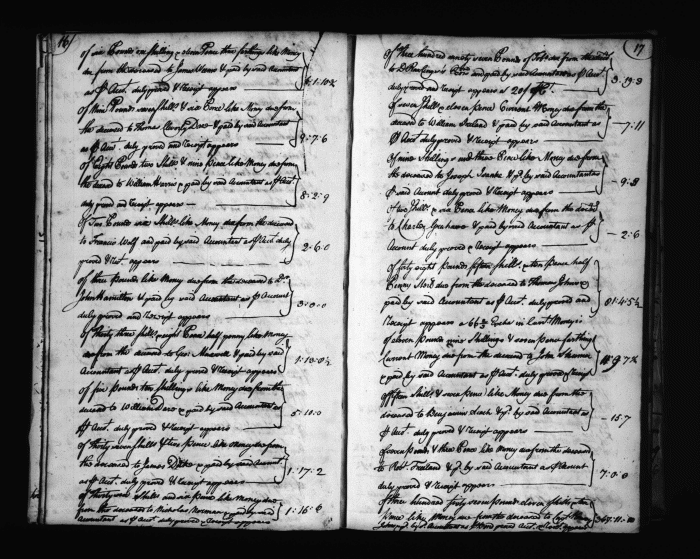 16
of six Pounds one shilling & eleven Pence three farthings like Money
due from the deceased to James Weems & paid by said Accountant
as p Acct. duly proved & Receipt appears
of Nine Pounds seven Shills & six Pence like Money due from
the deceased to Thomas Clearly Dew & paid by said Accountant
as p Acct. duly proved and Receipt appears 9..7..6
of Eight Pounds two Shills & nine pence like Money due from
the deceased to William Harris & paid by said Accountant as p Acct
duly proved and Receipt appears 8..2..9
of Two Pounds six Shills like Money due from the deceased
to Francis Wolf and paid by said Accountant as p Acct duly 2..6..0
proved & Rect. appears
of three pounds like Money due from the deceased to Dr.
John Hamilton & paid by said Accountant as p Account 3..0..0
duly proved and Receipt appears
of Thirty three shills eight Pence half penny like Money
due from the deceased to Geo. Maxwell & paid by said
Accountant as p Acct. duly proved & Receipt appears
of five pounds ten Shillings like Money due from the
deceased to William Dare & paid by said Accountant as 5..10..0
p Acct. duly proved & Receipt appears
of thirty seven Shills & two pence like Money due from
the deceased to James & paid by said Account 1..17..2
as p Acct. duly proved & Receipt appears
of thirty six Shills and six pence like Money due
from the deceased to Nicholas Norman & paid by said 1..16..6
Accountant as p Acct duly proved & Receipt appears
17
of Three hundred ninety seven Pounds of Tobo. due from the
to Dr and paid by said Accountant as p Acct. 3..19..3
duly proved and Receipt appears at 20/
of seven Shills & eleven pence Current Money due from the
deceased to William Ireland & paid by said Accountant as —7..11
p Acct duly proved & Receipt appears
of nine Shillings and three Pence like Money due from
the deceased to Joseph & pd. by said Accountant as
p said Account duly proved & Receipt appears
of two Shills & six Pence like Money due from the deced
to Charles Grahame & paid by said Accountant as p —2..6
Account duly proved & Receipt appears
of forty eight pounds fifteen shills & ten pence half
Penny due from the deceased to Thomas Johns
paid by said Accountant as p Acct. duly proved and
Receipt appears a 66 2/3 Exchs. in Curt. Money is
of eleven pounds nine Shillings & seven pence farthing
Current Money due from the deceased to John
paid by said Accountant as p Acct. duly proved & Receipt
of fifteen Shills & seven pence like Money due from the
deceased to Benjamin & pd. by said Accountant as —15..7
p Acct. duly proved & Receipt appears
of seven pounds & three Pence like Money due from the deceased
to Robt. Freeland & pd. by said Accountant as p Account
duly proved & Receipt appears
of three hundred forty seven pounds eleven shills & ten
pence like Money due from the deceased to Capt. 347..11..10
by sd. Accountant as p Bond proved Acct. & Rect. appears